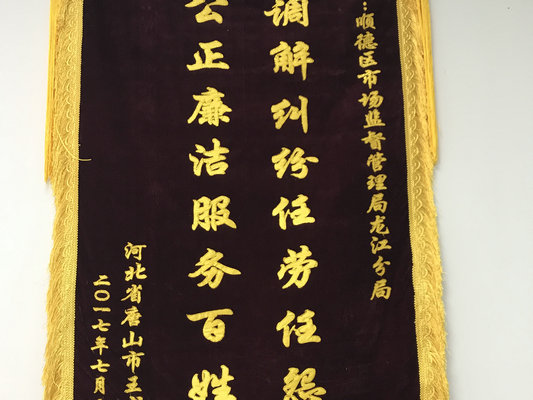 ：顺德区市场监督管理局龙江分局
调解纠纷任劳任怨
公正廉洁服务百姓
河北省唐山市王
二〇一七年七月